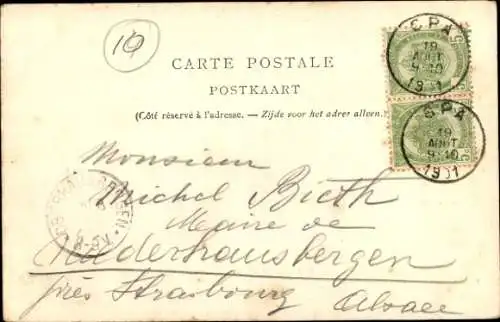 10
CARTE POSTALE
POSTKAART
(Côté réservé à l'adresse. — Zijde voor het adres alleen.)
SPA
19
AOUT
9-10
1901
SPA
19
AOUT
9-10
1901
Monsieur
Michel Bieth
Maire de
Niederhausbergen
près Strasbourg
Alsace